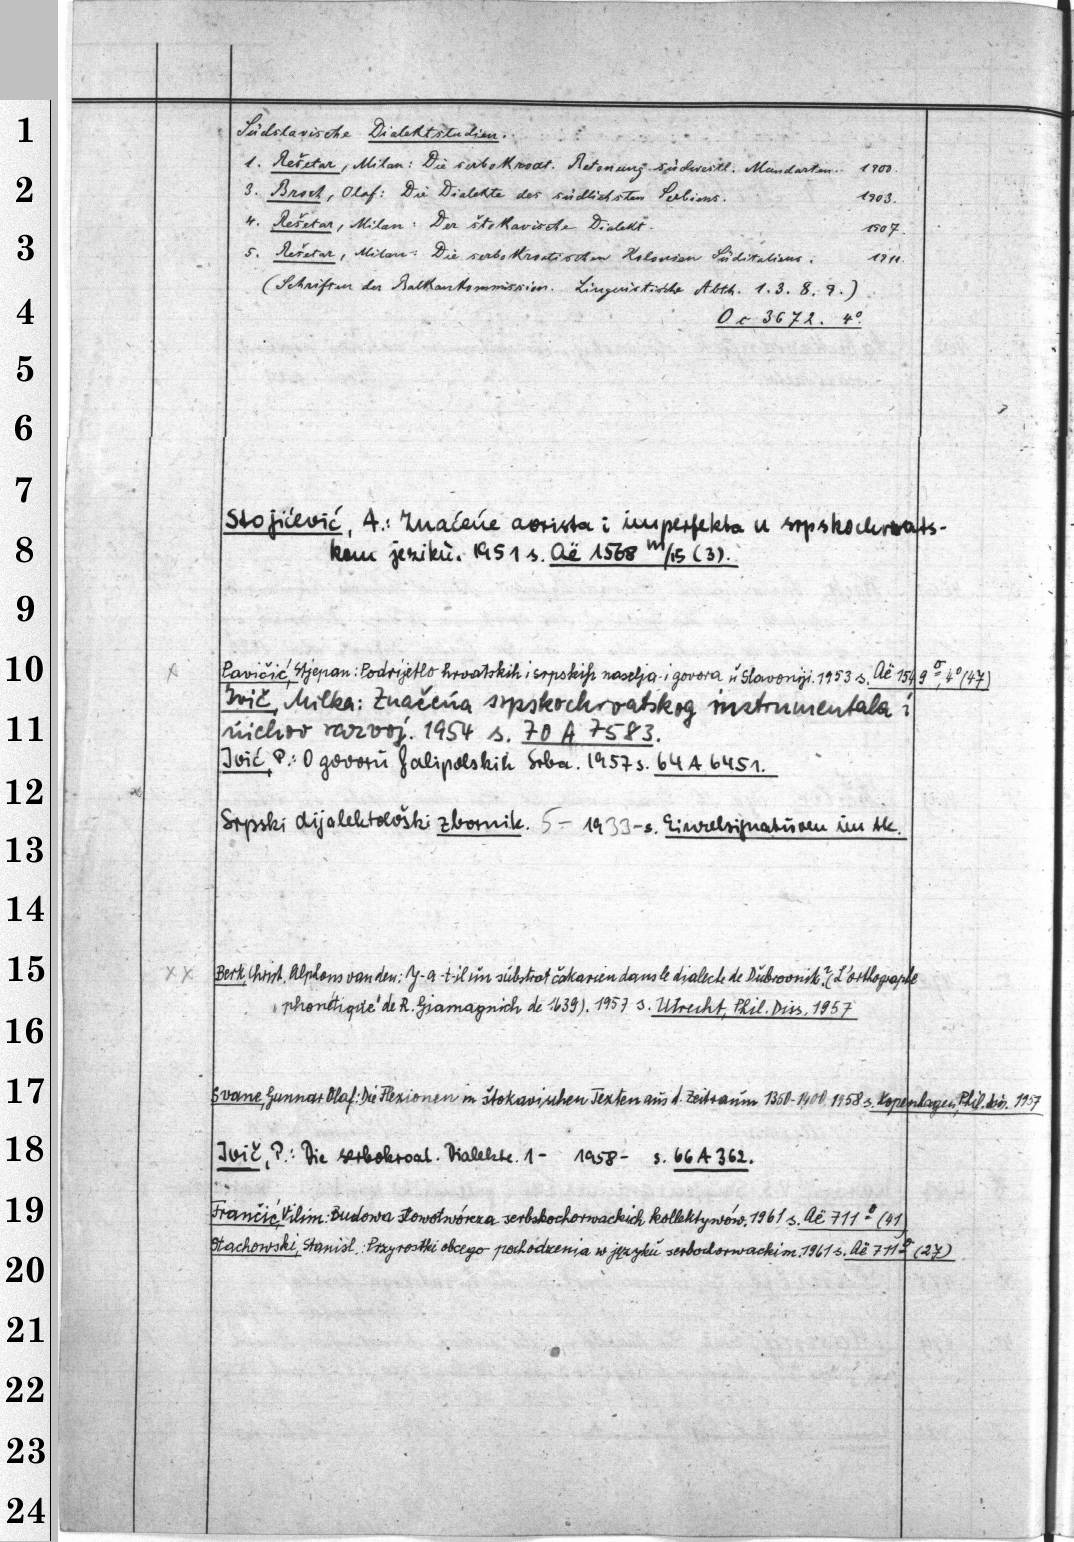 1
2
3
4
5
6
7
8
9
10
11
12
13
14
15
16
17
18
19
20
21
22
23
24
Südslavische Dialektstudien.
1. Rešetar, Milan: Die serbokroat. Betonung südwestl. Mundarten. 1900.
3. Broch, Olaf: Die Dialekte des südlichsten Serbiens. 1903.
4. Rešetar, Milan: Der štokavische Dialekt. 1907.
5. Rešetar, Milan: Die serbokroatischen Kolonien Süditaliens. 1911.
(Schriften der Balkankommission. Linguistische Abth. 1. 3. 8. 9.)
Oc 3672. 4°.
Stojićević, A.: Značeńe aorista i imperfekta u srpskochrvats-
kom jeziku. 1951 s. Aë 1568 m/15 (3).
x Pavičić, Stjepan: Podrijetlo hrvatskih i srpskih naselja i govora u Slavoniji. 1953 s. Aë 1549 °, 4° (47)
Ivič, Milka: Značeńa srpskochrvatskog instrumentala i
ńichov razvoj. 1954 s. 70 A 7583.
Ivić, P.: O govoru Galipolskih Srba. 1957 s. 64 A 6451.
Srpski dijalektološki zbornik. 5 - 1933 - s. Einzelsignaturen im AK.
x x Berk, Christ. Alphons van den: Y-a-t-il un substrat čakavien dans le dialecte de Dubrovnik? (L'orthographe
"phonétique" de R. Giamagnich de 1639). 1957 s. Utrecht, Phil. Diss. 1957
Svane, Gunnar Olaf: Die Flexionen in štokavischen Texten aus d. Zeitraum 1350-1400. 1958 s. Kopenhagen, Phil. diss. 1957
Ivič, P.: Die serbokroat. Dialekte. 1 - 1958 - s. 66 A 362.
Frančić, Vilim: Budowa słowotwórcza serbskochorwackich kollektywów. 1961 s. Aë 711 ° (41)
Stachowski, Stanisl.: Przyrostki obcego pochodzenia w języku serbochorwackim. 1961 s. Aë 711 ° (27)